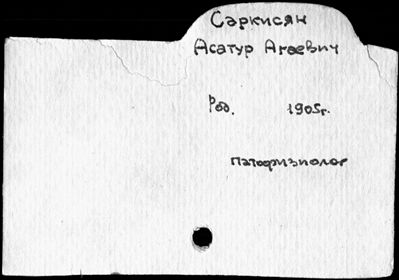 Саркисян
Асатур Агаевич
Род. 1905г.
патофизиолог